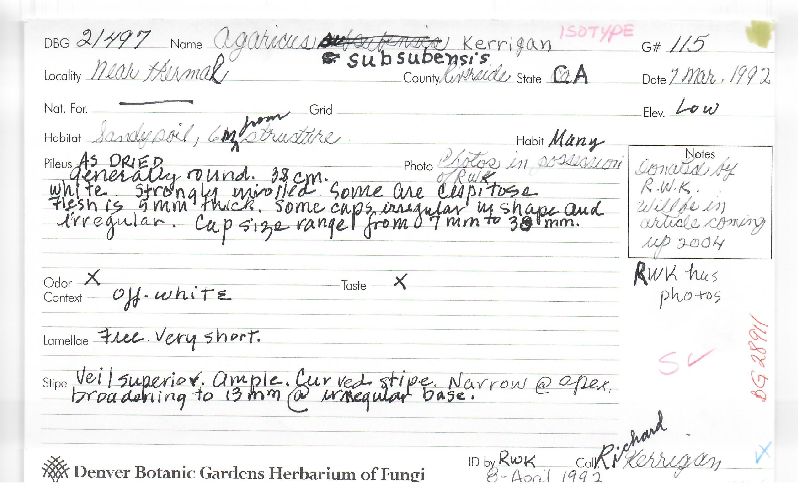 DBG 21497 Name Agaricus subsubensis Kerrigan ISOTYPE G# 115
subsubensis
Locality Near thermal County Riverside State CA Date 7 Mar. 1992
Nat. For. Grid Elev. Low
Habitat Sandy soil, 6m from structure Habit Many
Pileus AS DRIED Photo Photos in possession of RWK
Generally round. 38 cm.
white. Strongly inrolled. Some are cespitose
Flesh is 5 mm thick. Some caps irregular in shape and
irregular. Cap size range from 7 mm to 38 mm.
Notes
Donated by
R.W.K.
will be in
article coming
up 2004
RWK has
photos
Odor X Taste X
Context off-white
Lamellae Free. Very short.
Stipe Veil superior. Ample. Curved stipe. Narrow @ apex.
broadening to 13 mm @ irregular base.
BG 28911
Denver Botanic Gardens Herbarium of Fungi
ID by RWK Coll. Richard Kerrigan
8-April 1992